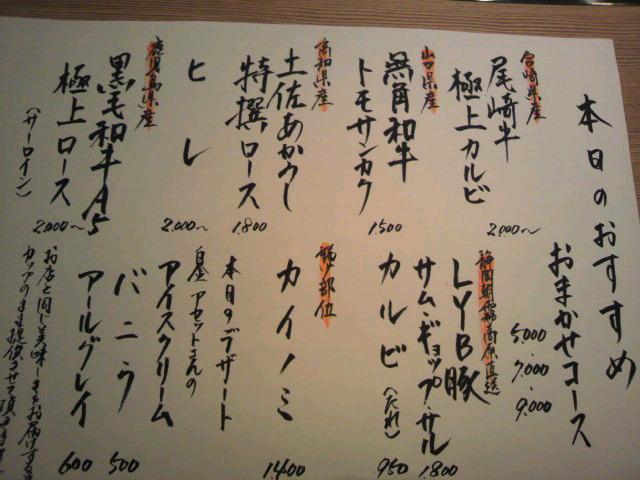 本日のおすすめ
おまかせコース
5,000
・
7,000
・
9,000
宮崎県産
尾崎牛
極上カルビ
2,000〜
山口県産
無角和牛
トモサンカク
1500
高知県産
土佐あかうし
特撰ロース
1,800
ヒレ
2,000〜
鹿児島県産
黒毛和牛A5
極上ロース
(サーロイン)
2,000〜
静岡朝霧高原直送
LYB豚
サム・ギョップ・サル
1,800
カルビ(たれ)
950
部位
カイノミ
1,400
本日のデザート
白金アセットさんの
アイスクリーム
バニラ
500
アールグレイ
600
お店と同じ美味しさをお届けする
カップのまま提供させて頂